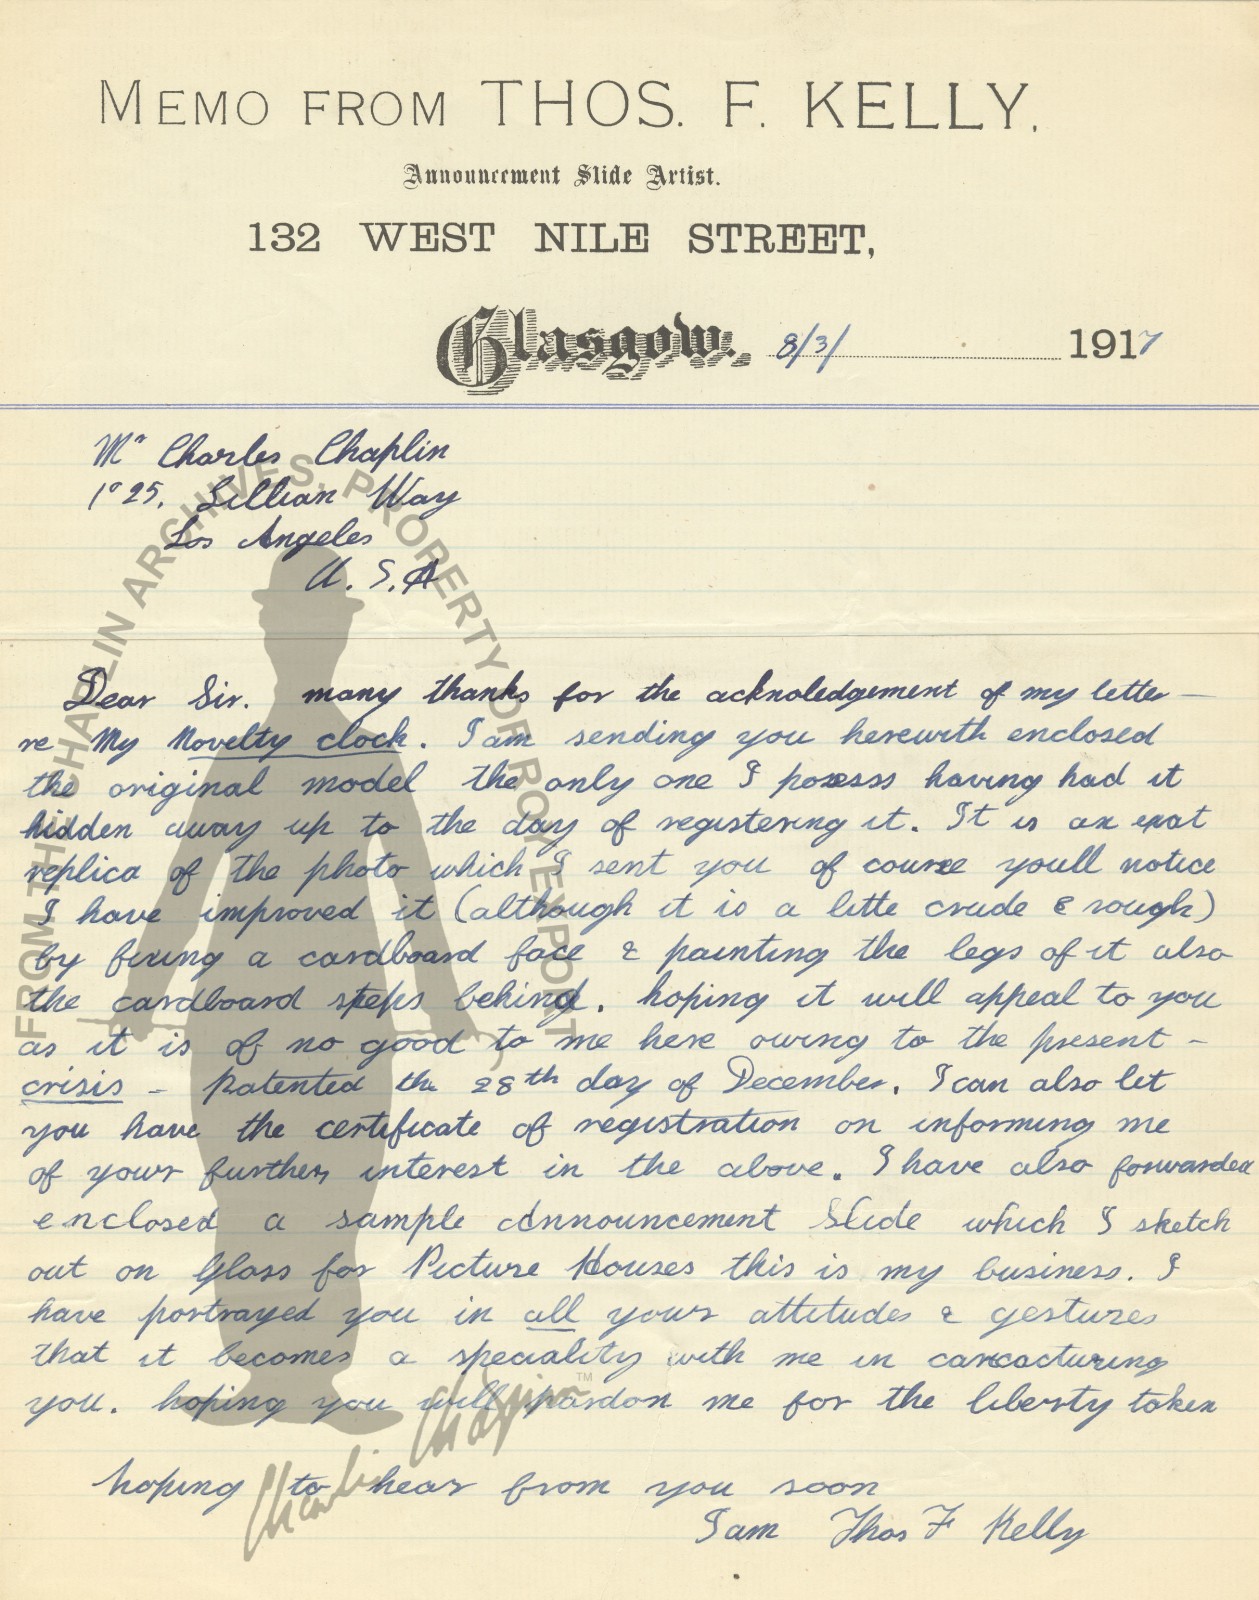 MEMO FROM THOS. F. KELLY.
Announcement Slide Artist.
132 WEST NILE STREET,
Glasgow. 8/3/ 1917
Mr Charles Chaplin
1025. Lillian Way
Los Angeles
U. S. A
Dear Sir. many thanks for the acknoledgement of my letter —
re My Novelty clock. I am sending you herewith enclosed
the original model the only one I posess having had it
hidden away up to the day of registering it. It is an exat
replica of the photo which I sent you of course youll notice
I have improved it (although it is a litte crude & rough)
by fixing a cardboard face & painting the legs of it also
the cardboard steps behind. hoping it will appeal to you
as it is of no good to me here owing to the present —
crisis — Patented the 28th day of December. I can also let
you have the certificate of registration on informing me
of your further interest in the above. I have also forwarded
enclosed a sample Announcement Slide which I sketch
out on Glass for Picture Houses this is my business. I
have portrayed you in all your attitudes & gestures
that it becomes a speciality with me in caricacturing
you. hoping you will pardon me for the liberty taken
hoping to hear from you soon
I am Thos F Kelly
FROM THE CHAPLIN ARCHIVES, PROPERTY OF ROY EXPORT
Charlie Chaplin™